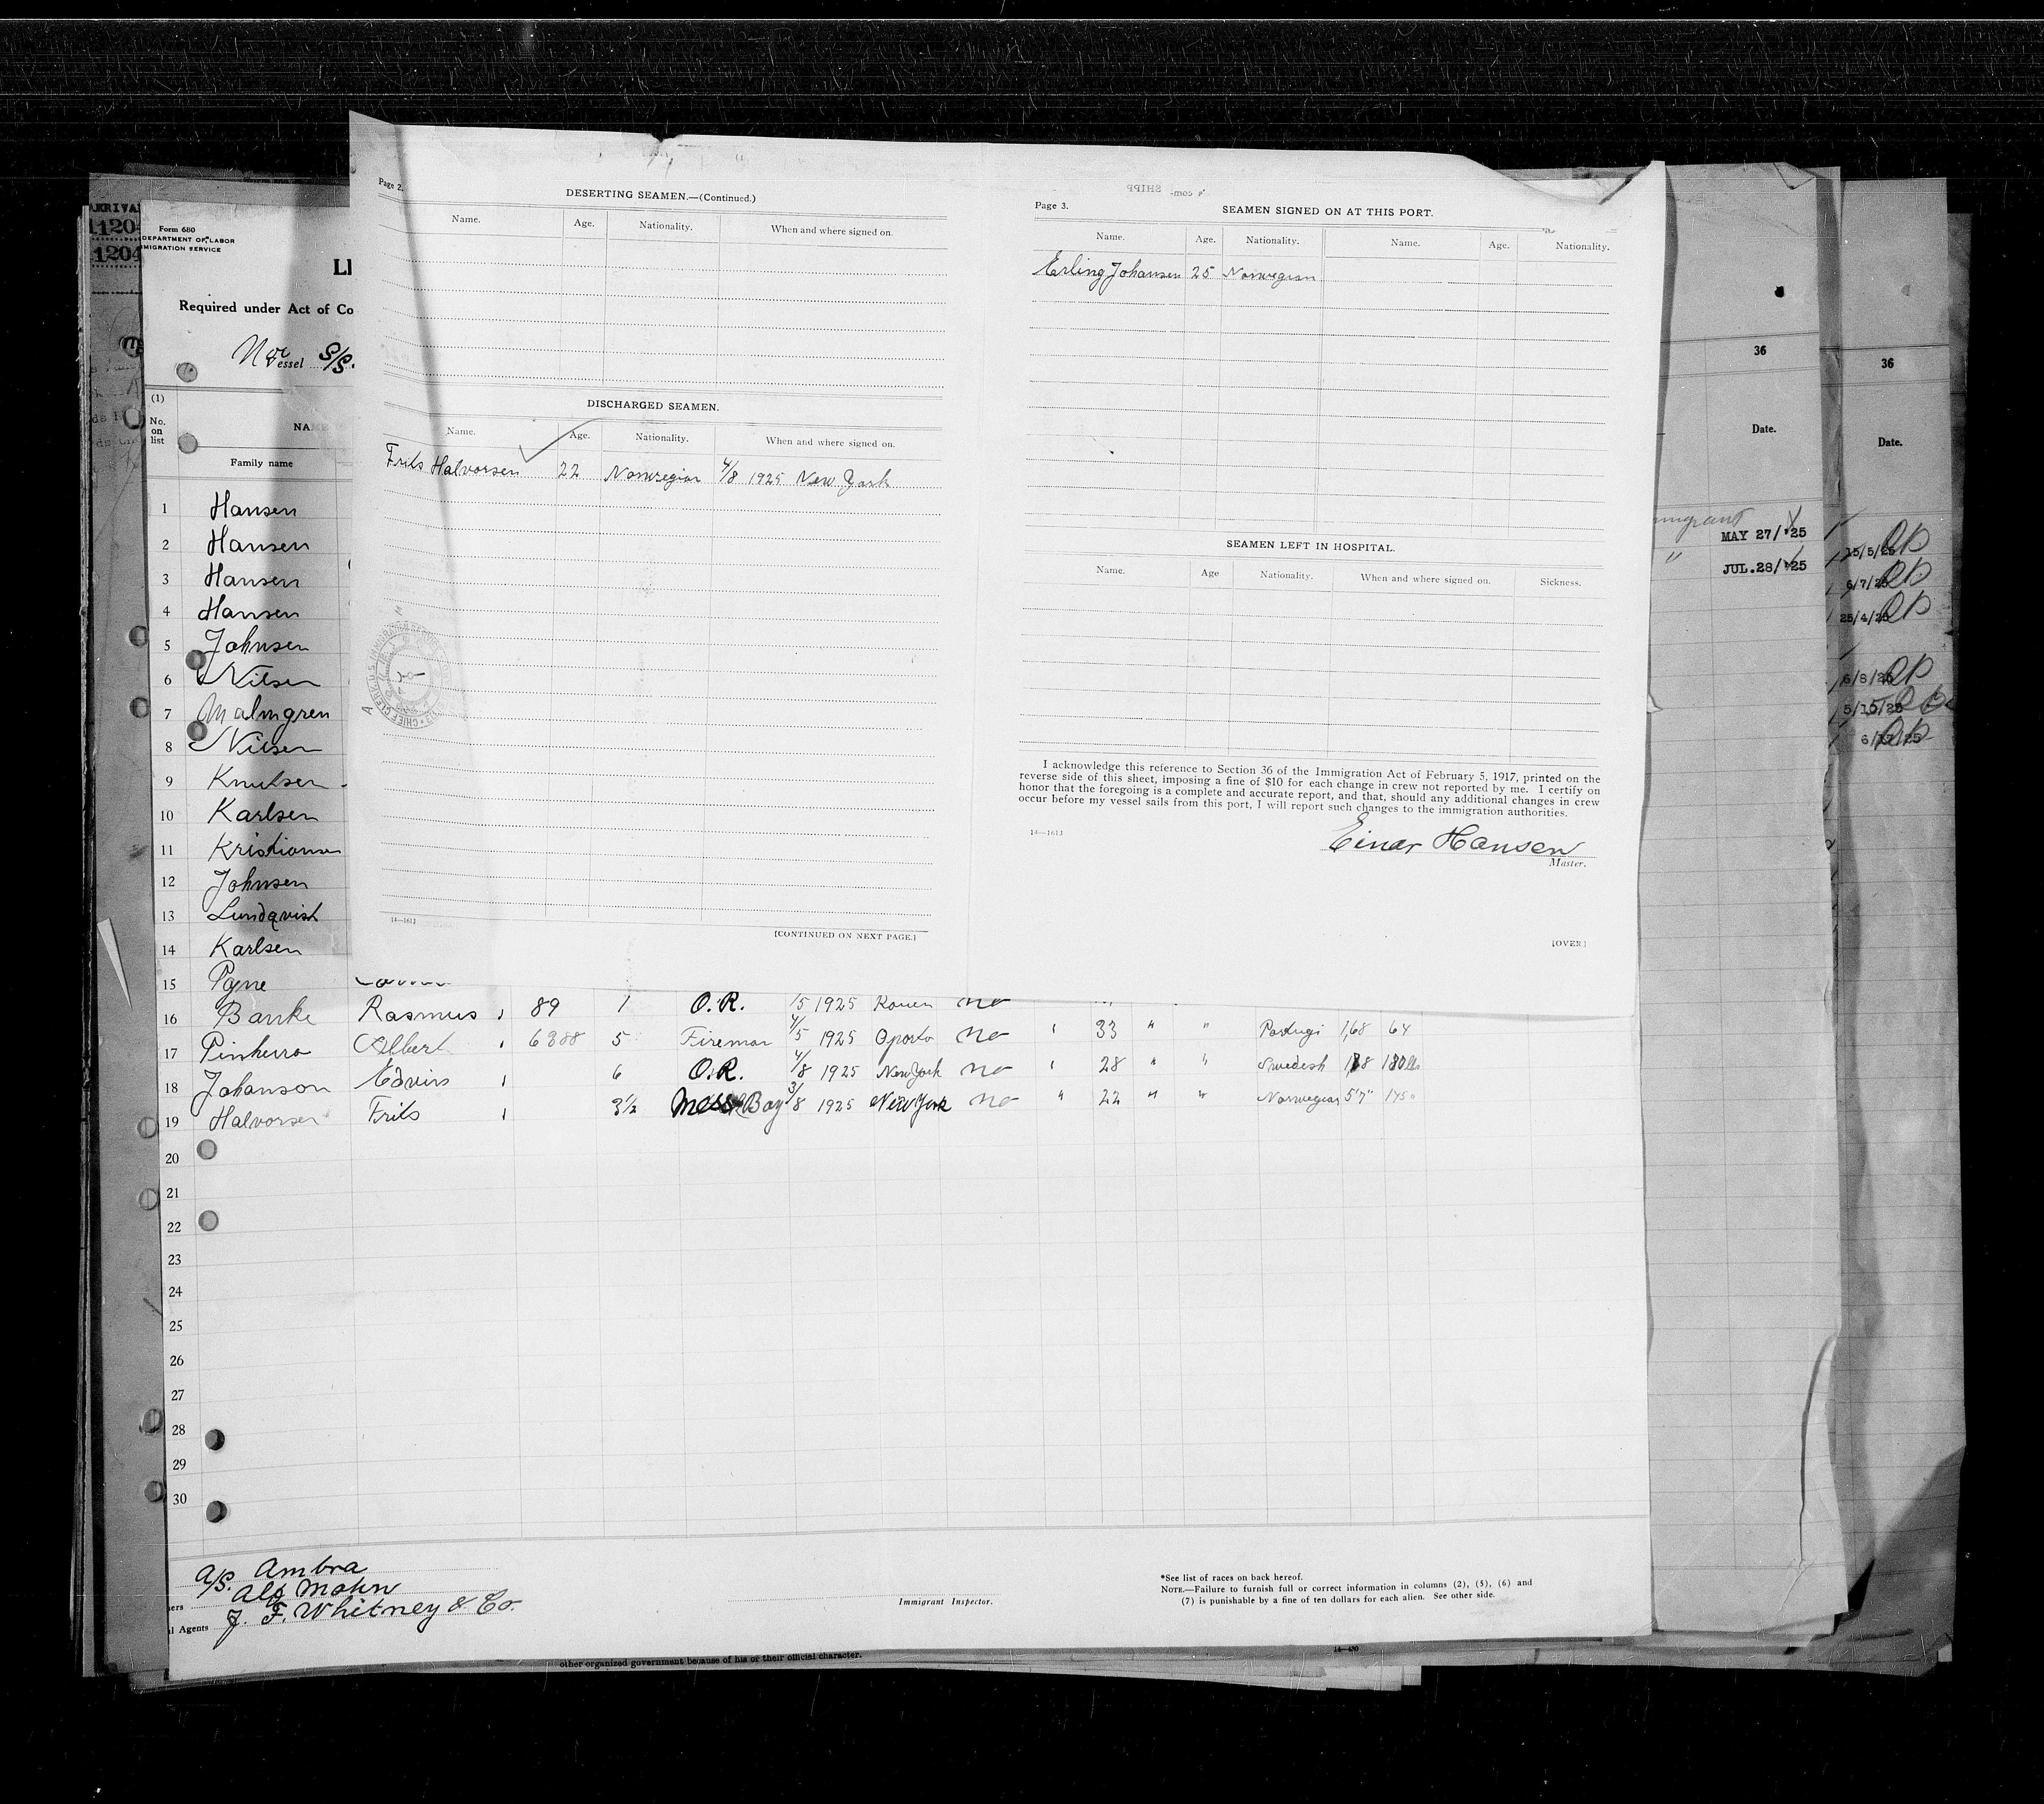 Page 2.
DESERTING SEAMEN.—(Continued.)
Name. Age. Nationality. When and where signed on.
DISCHARGED SEAMEN.
Name. Age. Nationality. When and where signed on.
Frits Halvorsen 22 Norwegian 4/8 1925 New York
14—1613
[CONTINUED ON NEXT PAGE.]
Page 3.
SEAMEN SIGNED ON AT THIS PORT.
Name. Age. Nationality. Name. Age. Nationality.
Erling Johansen 25 Norwegian
SEAMEN LEFT IN HOSPITAL.
Name. Age Nationality. When and where signed on. Sickness.
I acknowledge this reference to Section 36 of the Immigration Act of February 5, 1917, printed on the
reverse side of this sheet, imposing a fine of $10 for each change in crew not reported by me. I certify on
honor that the foregoing is a complete and accurate report, and that, should any additional changes in crew
occur before my vessel sails from this port, I will report such changes to the immigration authorities.
14—1613
Einar Hansen
Master.
[OVER]
ARRIVA
1120
1204
Form 680
DEPARTMENT OF LABOR
MIGRATION SERVICE
LI
Required under Act of Co
Nor Vessel S/S.
(1)
No. on list
NAME
Family name
1 Hansen
2 Hansen
3 Hansen
4 Hansen
5 Johnsen
6 Nilsen
7 Malmgren
8 Nilsen
9 Knutsen
10 Karlsen
11 Kristiansen
12 Johnsen
13 Lundqvist
14 Karlsen
15
16 Banke Rasmus 89 1 O.R. /5 1925 Rouen no
17 Pinherro Albert 6388 5 Fireman 4/5 1925 Oporto no " 33 " " Portugi 1,68 64
18 Johanson Edvin 6 O.R. 4/8 1925 New York no " 28 " " Swedesh 1,68 180 lbs
19 Halvorsen Frits 3½ Mess Boy 3/8 1925 New York no " 22 " " Norwegian 5'7" 145
20
21
22
23
24
25
26
27
28
29
30
A/S. Ambra
Alf Mohn
ners
J. F. Whitney & Co.
l Agents
Immigrant Inspector.
*See list of races on back hereof.
NOTE.—Failure to furnish full or correct information in columns (2), (5), (6) and
(7) is punishable by a fine of ten dollars for each alien. See other side.
other organized government because of his or their official character.
14—430
36
Date.
MAY 27/25
" JUL. 28/25
36
Date.
15/5/25
6/7/25
25/4/25
6/8/25
5/15/25